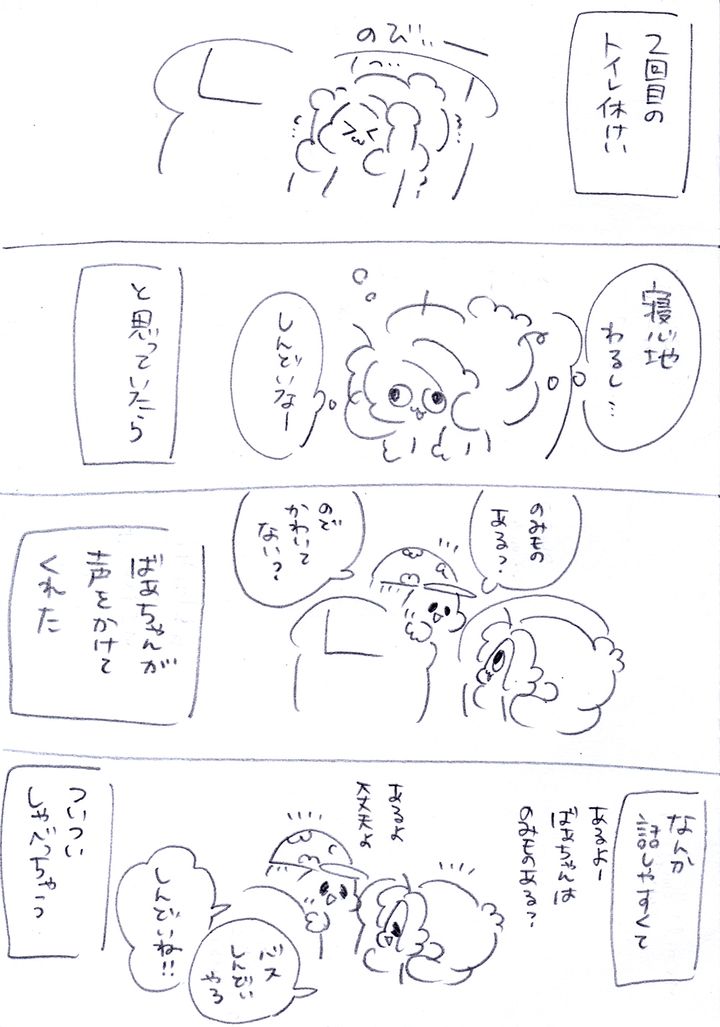 2回目の
トイレ休けい
のび…
寝心地
わるし…
しんどいなー
と思っていたら
のみもの
ある?
のど
かわいて
ない?
ばあちゃんが
声をかけて
くれた
なんか
話しやすくて
あるよー
ばあちゃんは
のみものある?
あるよ
大丈夫よ
バス
しんどい
やろ
しんどいね!!
ついつい
しゃべっちゃう